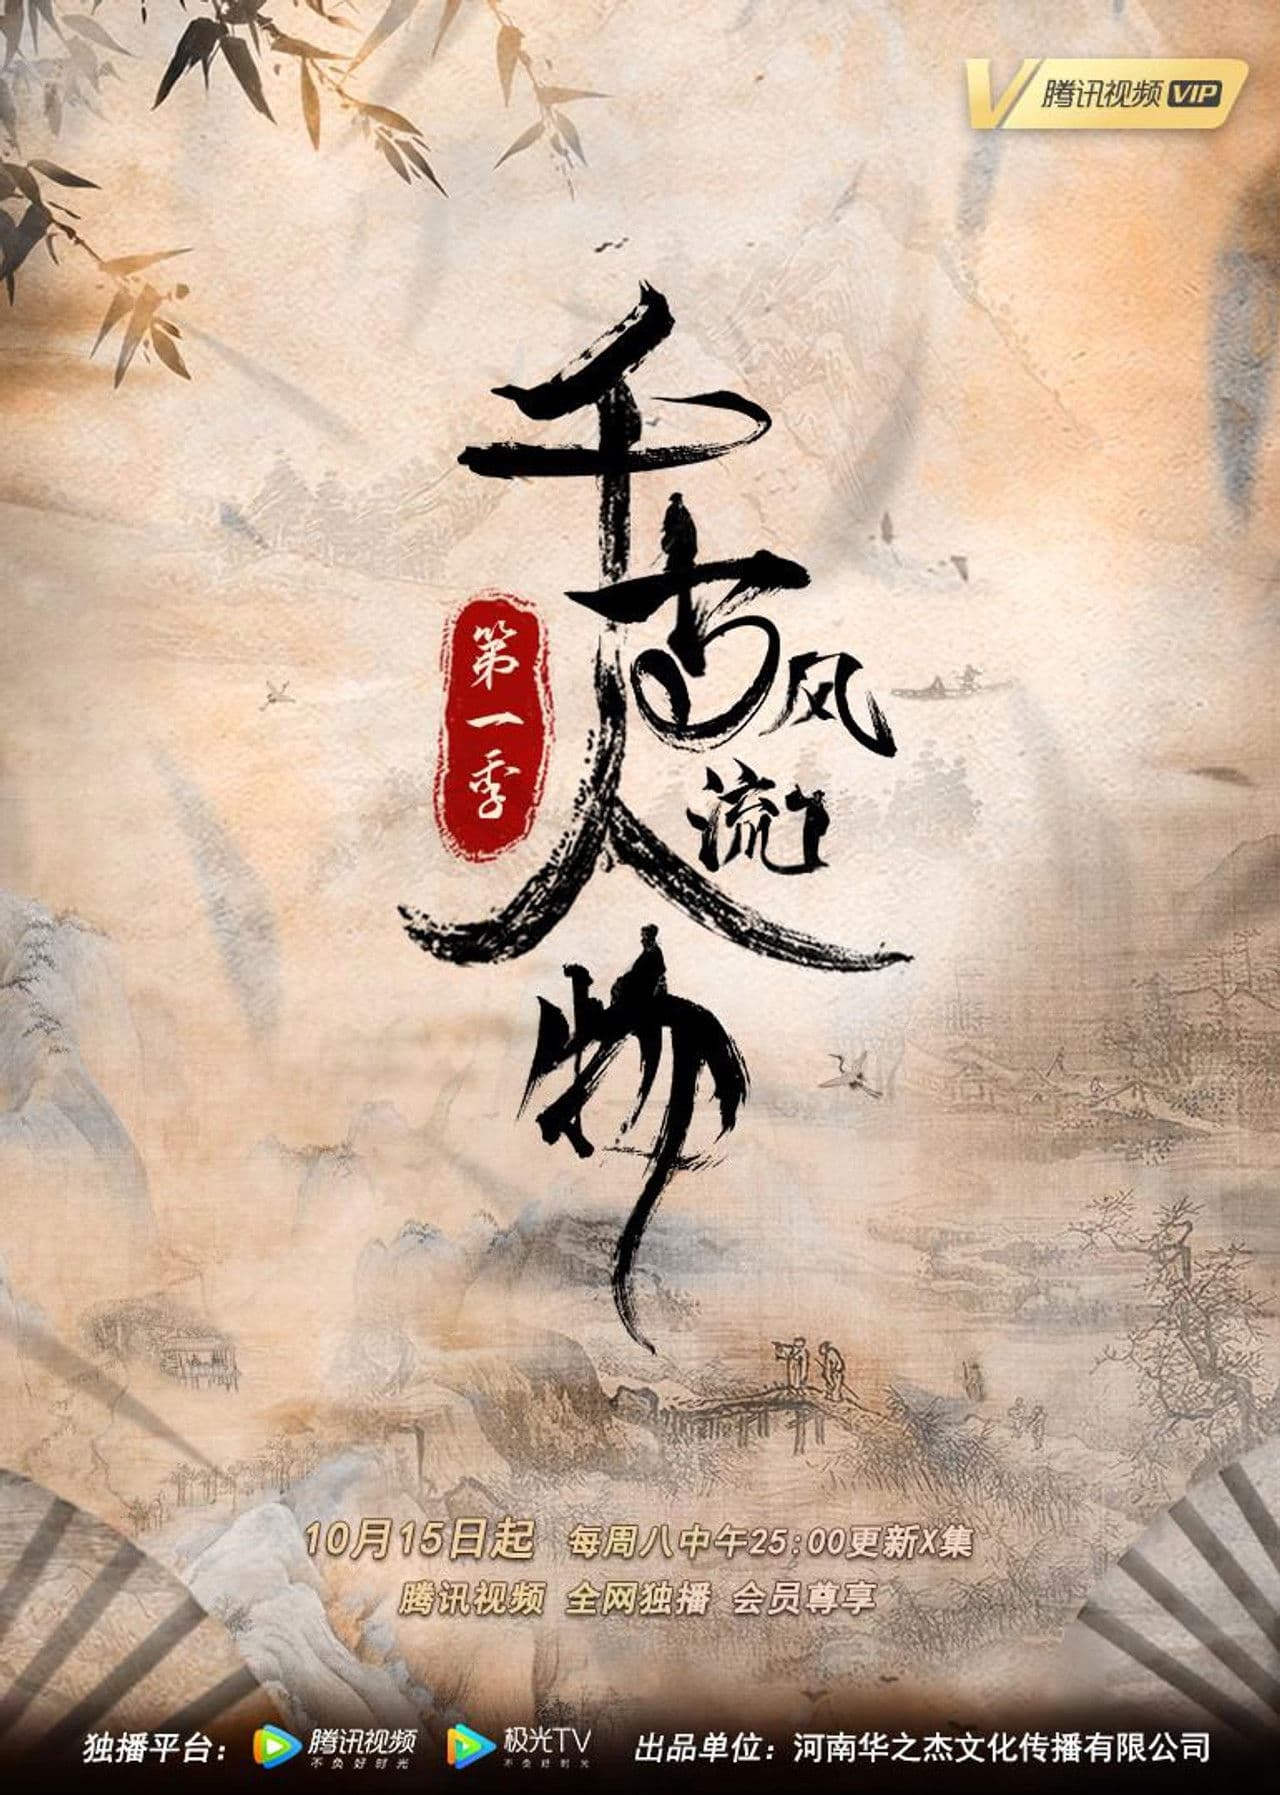 腾讯视频 VIP
千古风流人物
第一季
10月15日起 每周八中午25:00更新X集
腾讯视频 全网独播 会员尊享
独播平台： 腾讯视频 不负好时光 极光TV 不负好时光 出品单位：河南华之杰文化传播有限公司